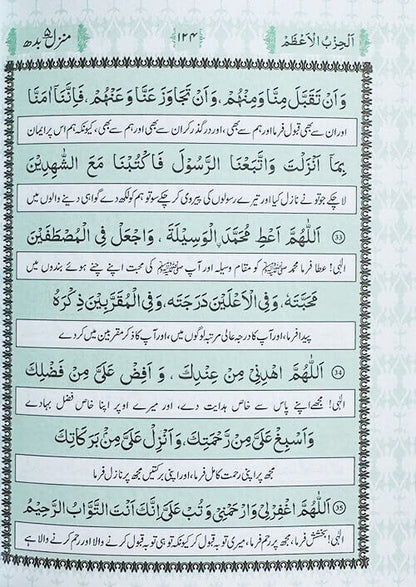 اَلْحِزْبُ الْاَعْظَمْ ۱۲۴ منزل ۵ بدھ
وَاَنْ تَقَبَّلَ مِنَّا وَمِنْهُمْ، وَاَنْ تَجَاوَزَ عَنَّا وَعَنْهُمْ، فَاِنَّنَا اٰمَنَّا
اور ان سے بھی قبول فرما اور ہم سے بھی، اور درگذر کر ان سے بھی اور ہم سے بھی، کیونکہ ہم اس پر ایمان
بِمَا اَنْزَلْتَ وَاتَّبَعْنَا الرَّسُوْلَ فَاكْتُبْنَا مَعَ الشّٰهِدِيْنَ
لا چکے جو تو نے نازل کیا اور تیرے رسولوں کی پیروی کر چکے سو تو ہم کو لکھ دے گواہی دینے والوں میں
33 اَللّٰهُمَّ اَعْطِ مُحَمَّدَنِ الْوَسِيْلَةَ، وَاجْعَلْ فِي الْمُصْطَفَيْنَ
الٰہی! عطا فرما محمد ﷺ کو مقام وسیلہ اور آپ ﷺ کی محبت اپنے چنے ہوئے بندوں میں
مَحَبَّتَهٗ، وَفِي الْاَعْلَيْنَ دَرَجَتَهٗ، وَفِي الْمُقَرَّبِيْنَ ذِكْرَهٗ
پیدا فرما، اور آپ کا درجہ عالی مرتبہ لوگوں میں، اور آپ کا ذکر مقربین میں کر دے
34 اَللّٰهُمَّ اهْدِنِيْ مِنْ عِنْدِكَ، وَ اَفِضْ عَلَيَّ مِنْ فَضْلِكَ
الٰہی! مجھے اپنے پاس سے خاص ہدایت دے، اور میرے اوپر اپنا خاص فضل بہا دے
وَاَسْبِغْ عَلَيَّ مِنْ رَّحْمَتِكَ، وَاَنْزِلْ عَلَيَّ مِنْ بَرَكَاتِكَ
مجھ پر اپنی رحمت کامل فرما، اور اپنی برکتیں مجھ پر نازل فرما
35 اَللّٰهُمَّ اغْفِرْلِيْ وَارْحَمْنِيْ وَتُبْ عَلَيَّ اِنَّكَ اَنْتَ التَّوَّابُ الرَّحِيْمُ
الٰہی! بخشش فرما، مجھ پر رحم فرما، میری توبہ قبول کر کیونکہ تو ہی توبہ قبول کرنے والا اور رحم کرنے والا ہے